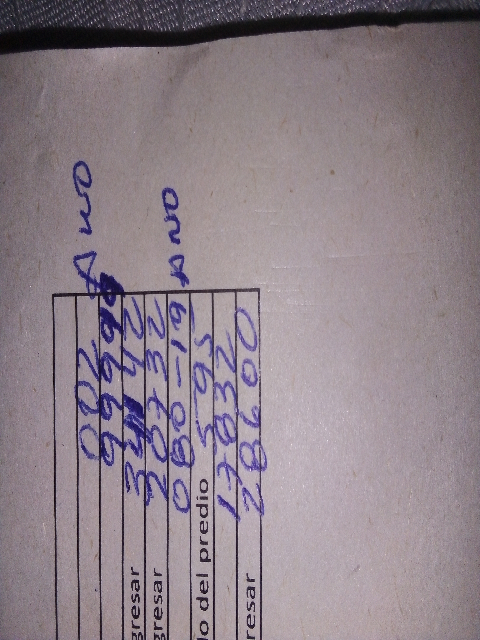 002 A NO
99999
gresar 3442
gresar 20732
080-19 A NO
lo del predio 595
17832
resar 28600